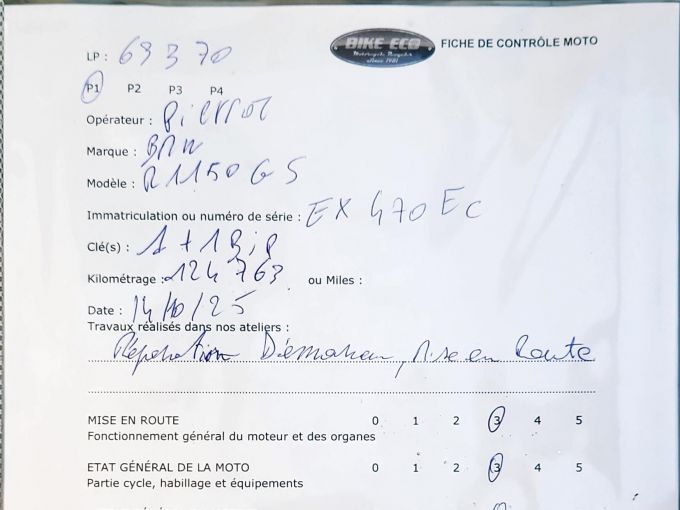 LP : 69370
BIKE ECO
Motorcycle Recycler
Since 1981
FICHE DE CONTRÔLE MOTO
P1 P2 P3 P4
Opérateur : Pierrot
Marque : BMW
Modèle : R1150GS
Immatriculation ou numéro de série : EX 470 EC
Clé(s) : 1 + 1 Bip
Kilométrage : 124 763 ou Miles :
Date : 14/10/25
Travaux réalisés dans nos ateliers :
Réparation Démarreur, Mise en Route
MISE EN ROUTE 0 1 2 3 4 5
Fonctionnement général du moteur et des organes
ETAT GÉNÉRAL DE LA MOTO 0 1 2 3 4 5
Partie cycle, habillage et équipements